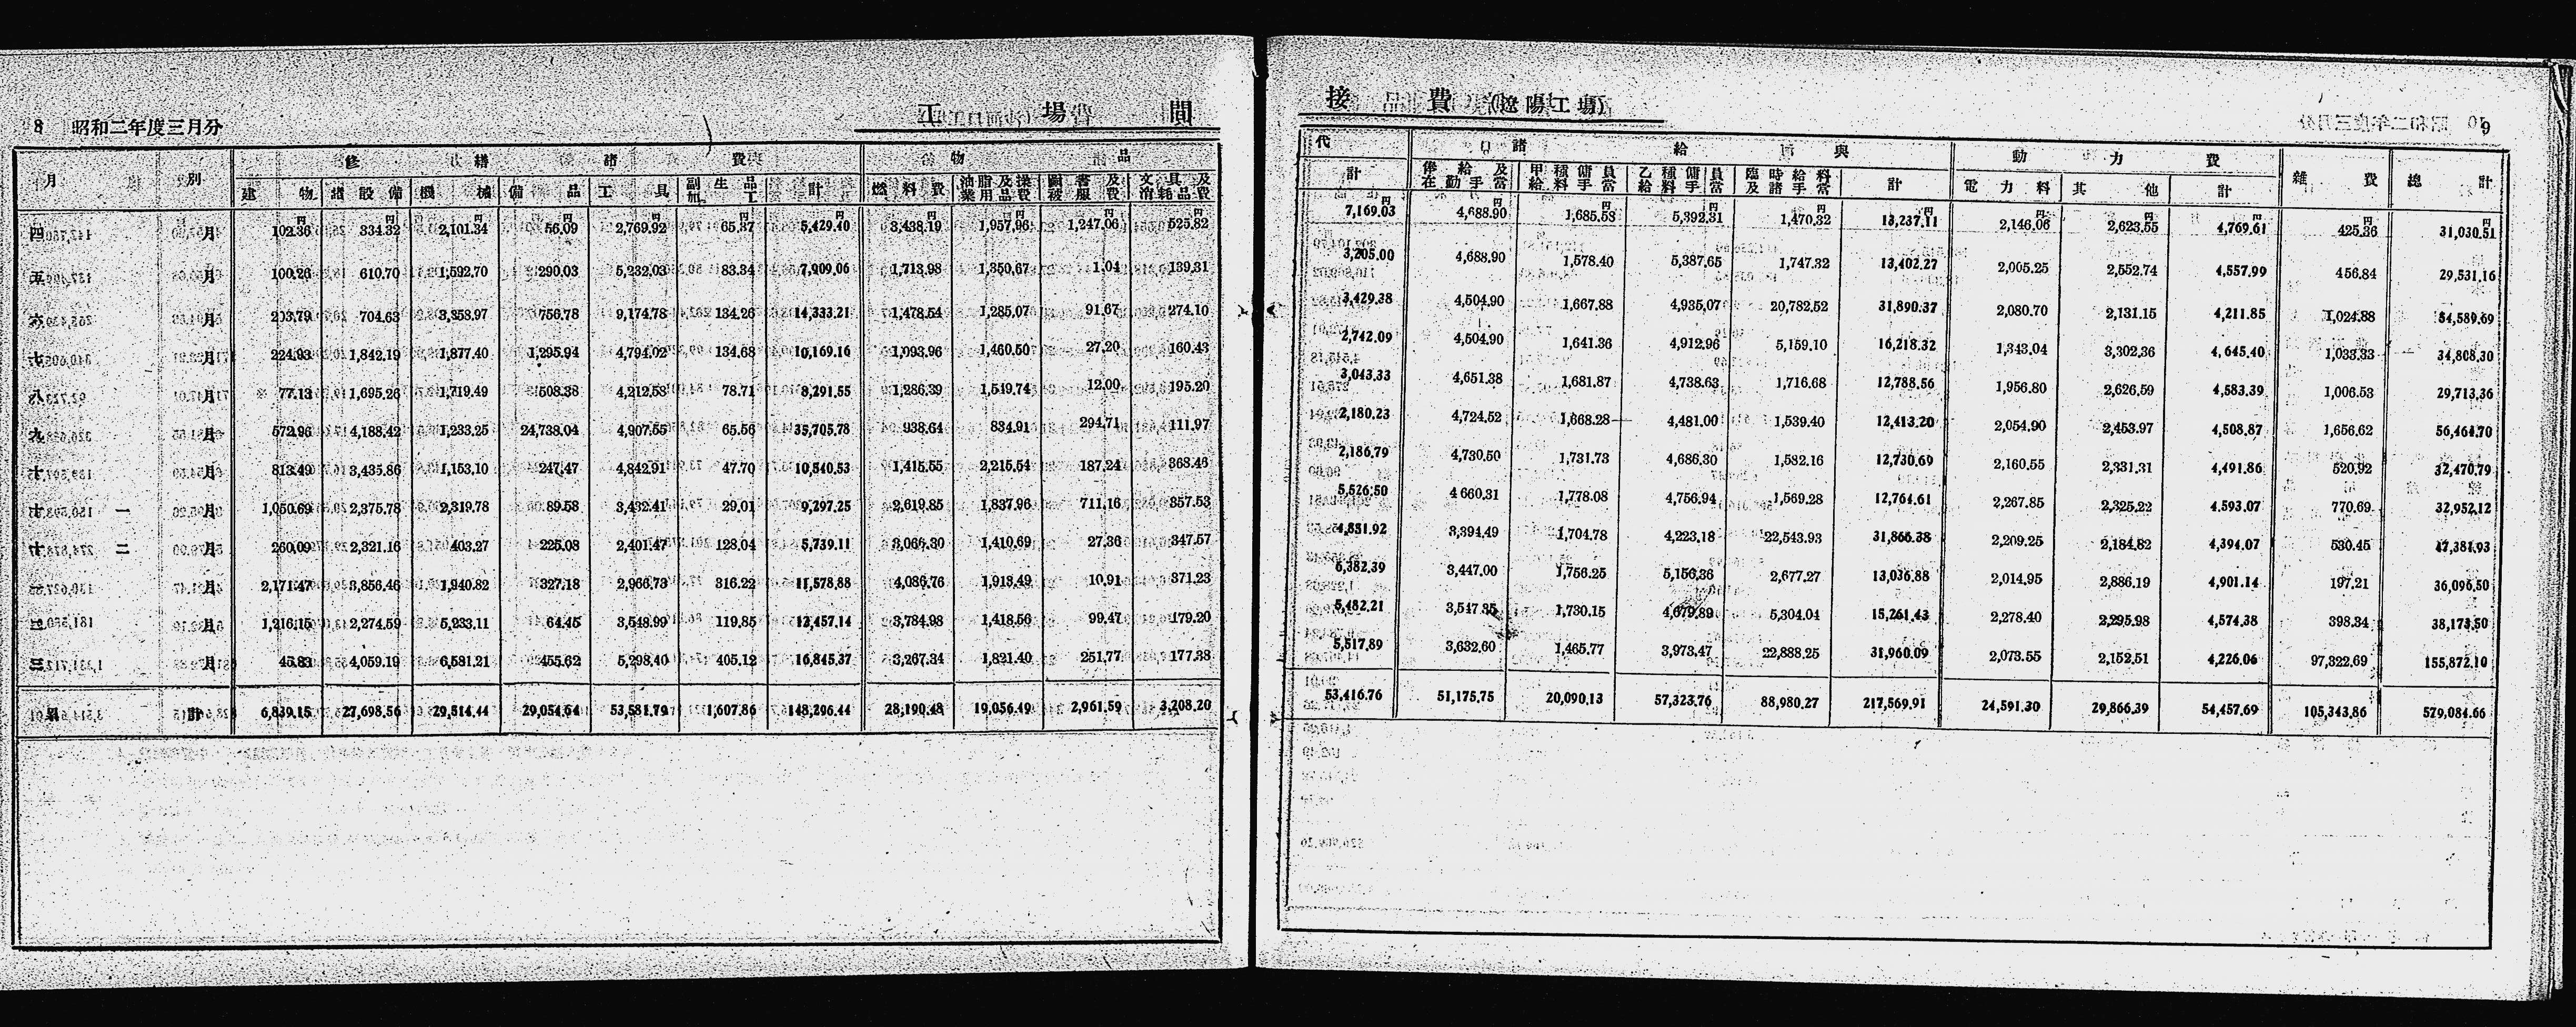 8 昭和二年度三月分
工場間接費(遼陽工場) 9
月別 修繕諸費 物品代 諸給與 動力費 雜費 總計
建物 諸設備 機械 備品 工具 副生品加工 計 燃料費 油脂及操業用品費 圖書及被服費 文具及消耗品費 計 俸給及在勤手當 甲種傭員給料手當 乙種傭員給料手當 臨時給料及諸手當 計 電力料 其他 計
円 円 円 円 円 円 円 円 円 円 円 円 円 円 円 円 円 円 円 円 円 円
四月 102.36 334.32 2,101.34 56.09 2,769.92 65.37 5,429.40 3,438.19 1,957.96 1,247.06 525.82 7,169.03 4,688.90 1,685.58 5,392.31 1,470.32 13,237.11 2,146.06 2,623.55 4,769.61 425.36 31,030.51
五月 100.26 610.70 1,592.70 290.03 5,232.03 83.34 7,909.06 1,713.98 1,350.67 1.04 139.31 3,205.00 4,688.90 1,578.40 5,387.65 1,747.32 13,402.27 2,005.25 2,552.74 4,557.99 456.84 29,531.16
六月 203.79 704.63 3,358.97 756.78 9,174.78 134.26 14,333.21 1,478.54 1,285.07 91.67 274.10 3,429.38 4,504.90 1,667.88 4,935.07 20,782.52 31,890.37 2,080.70 2,131.15 4,211.85 1,024.88 54,589.69
七月 224.93 1,842.19 1,877.40 1,295.94 4,794.02 134.68 10,169.16 1,093.96 1,460.50 27.20 160.43 2,742.09 4,504.90 1,641.36 4,912.96 5,159.10 16,218.32 1,343.04 3,302.36 4,645.40 1,033.33 34,808.30
八月 77.13 1,695.26 1,719.49 508.38 4,212.58 78.71 8,291.55 1,286.39 1,549.74 12.00 195.20 3,043.33 4,651.38 1,681.87 4,738.63 1,716.68 12,788.56 1,956.80 2,626.59 4,583.39 1,006.53 29,713.36
九月 572.96 4,188.42 1,233.25 24,738.04 4,907.55 65.56 35,705.78 938.64 834.91 294.71 111.97 2,180.23 4,724.52 1,668.28 4,481.00 1,539.40 12,413.20 2,054.90 2,453.97 4,508.87 1,656.62 56,464.70
十月 813.49 3,435.86 1,153.10 247.47 4,842.91 47.70 10,540.53 1,415.55 2,215.54 187.24 368.46 2,186.79 4,730.50 1,731.73 4,686.30 1,582.16 12,730.69 2,160.55 2,331.31 4,491.86 520.92 32,470.79
十一月 1,050.69 2,375.78 2,319.78 89.58 3,432.41 29.01 9,297.25 2,619.85 1,837.96 711.16 357.53 5,526.50 4,660.31 1,778.08 4,756.94 1,569.28 12,764.61 2,267.85 2,325.22 4,593.07 770.69 32,952.12
十二月 260.09 2,321.16 403.27 225.08 2,401.47 128.04 5,739.11 3,066.30 1,410.69 27.36 347.57 4,851.92 3,394.49 1,704.78 4,223.18 22,543.93 31,866.38 2,209.25 2,184.82 4,394.07 530.45 47,381.93
一月 2,171.47 3,856.46 1,940.82 327.18 2,966.73 316.22 11,578.88 4,086.76 1,913.49 10.91 371.23 6,382.39 3,447.00 1,756.25 5,156.36 2,677.27 13,036.88 2,014.95 2,886.19 4,901.14 197.21 36,096.50
二月 1,216.15 2,274.59 5,233.11 64.45 3,548.99 119.85 12,457.14 3,784.98 1,418.56 99.47 179.20 5,482.21 3,547.35 1,730.15 4,679.89 5,304.04 15,261.43 2,278.40 2,295.98 4,574.38 398.34 38,173.50
三月 45.83 4,059.19 6,581.21 455.62 5,298.40 405.12 16,845.37 3,267.34 1,821.40 251.77 177.38 5,517.89 3,632.60 1,465.77 3,973.47 22,888.25 31,960.09 2,073.55 2,152.51 4,226.06 97,322.69 155,872.10
累計 6,839.15 27,698.56 29,514.44 29,054.64 53,581.79 1,607.86 148,296.44 28,190.48 19,056.49 2,961.59 3,208.20 53,416.76 51,175.75 20,090.13 57,323.76 88,980.27 217,569.91 24,591.30 29,866.39 54,457.69 105,343.86 579,084.66